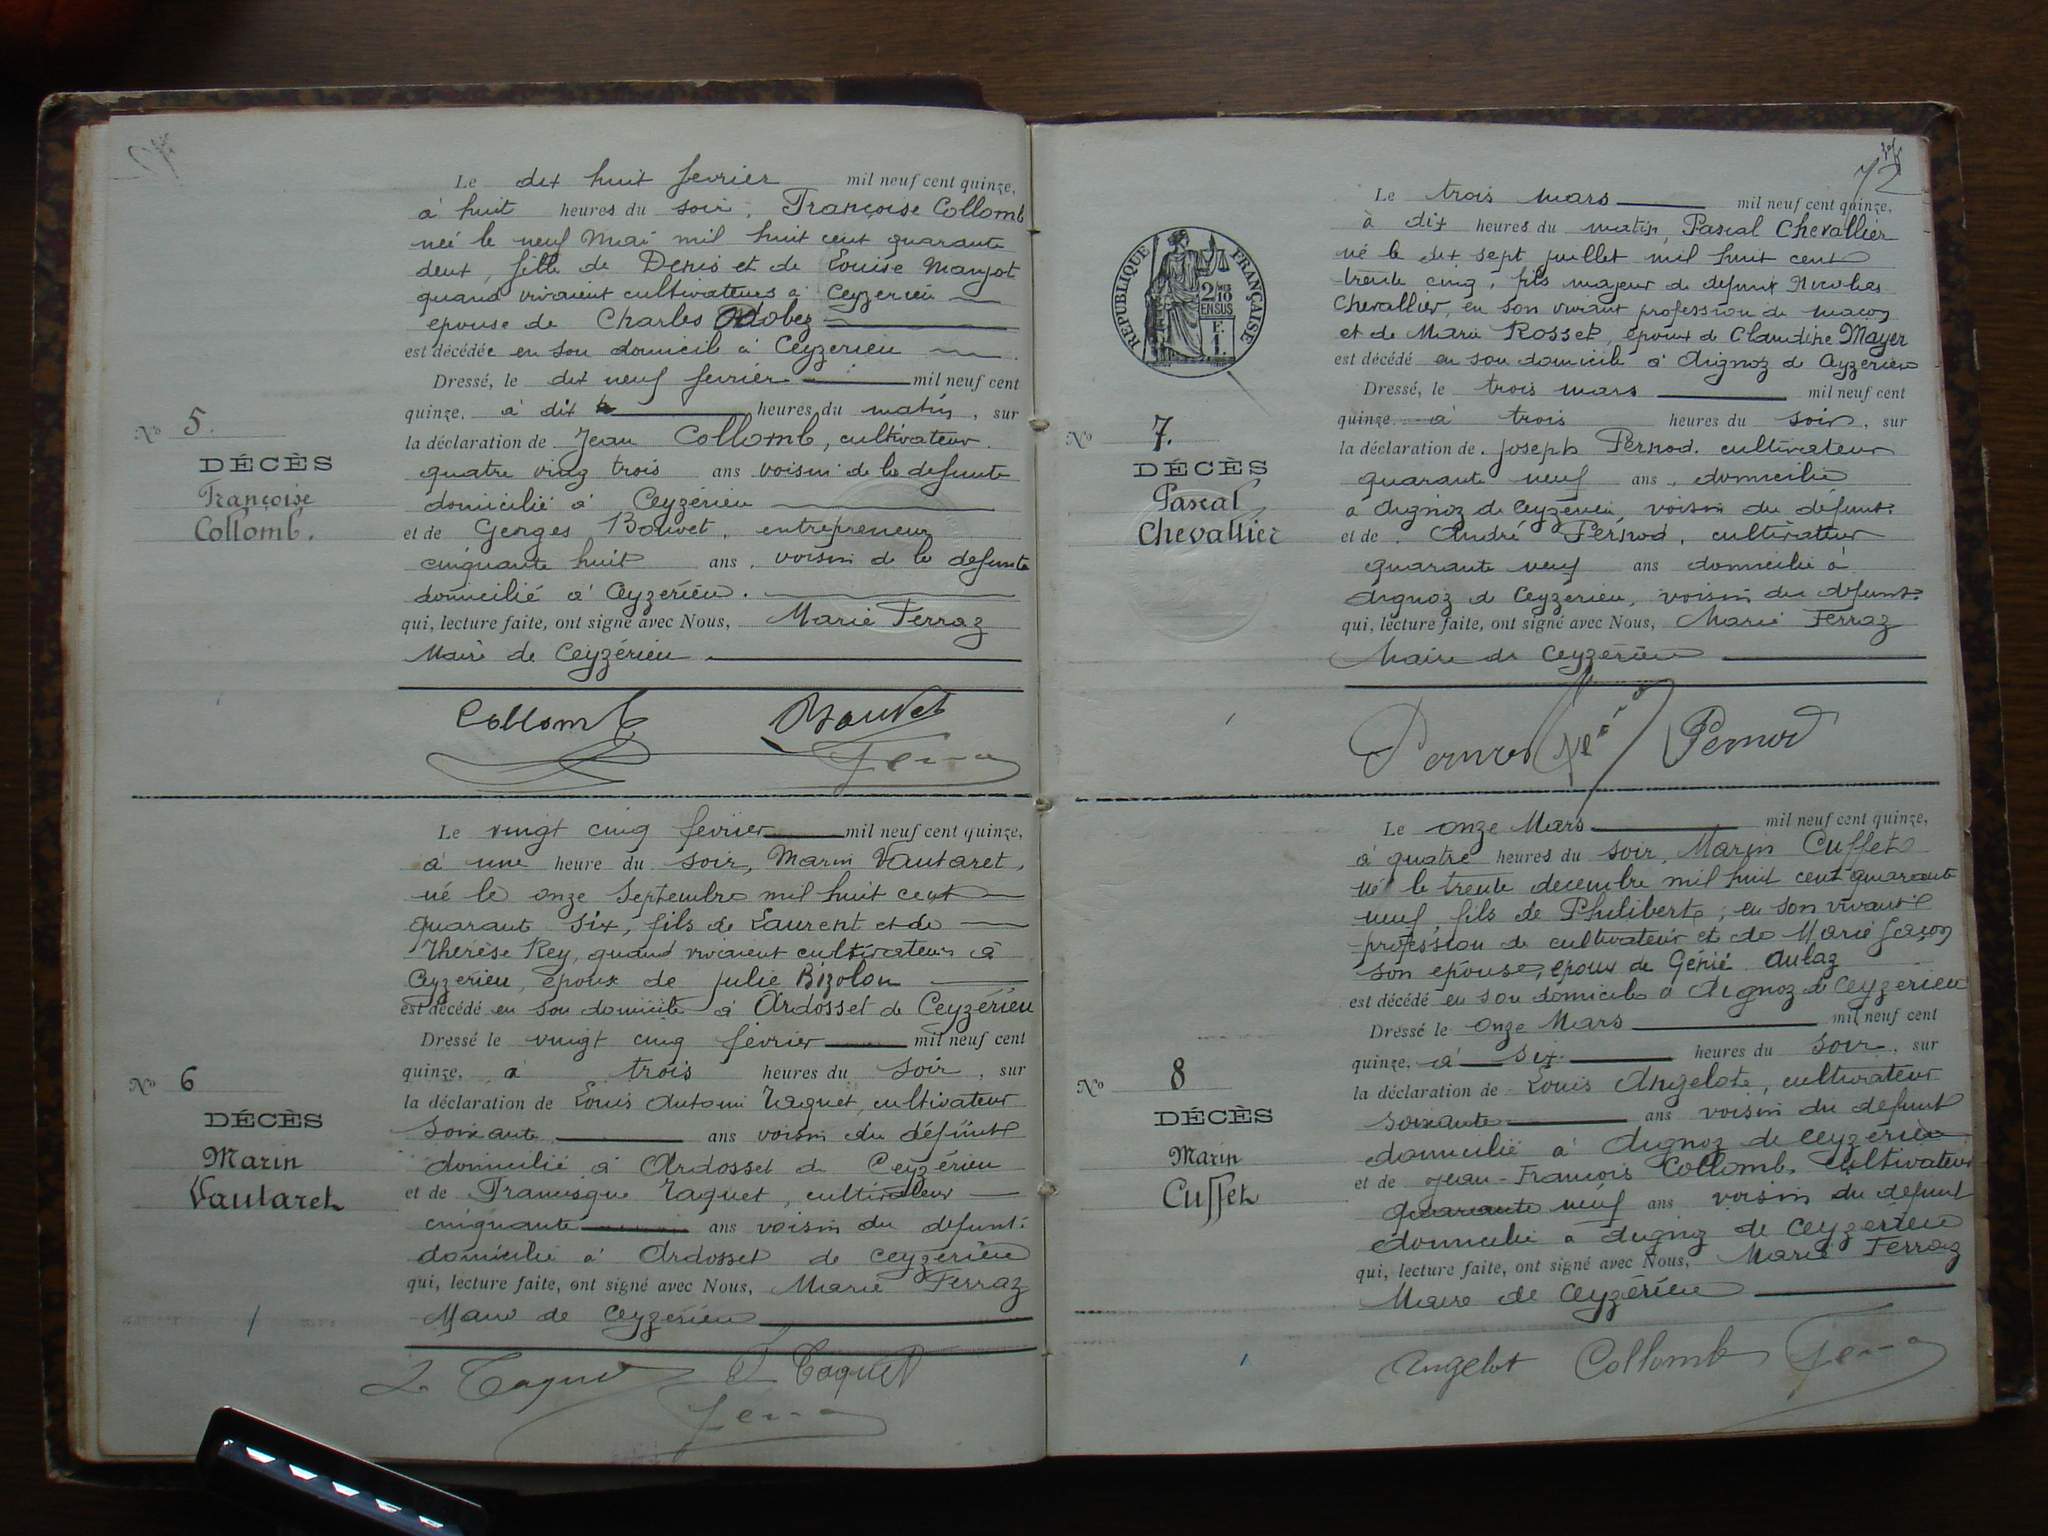 Le dix huit fevrier mil neuf cent quinze,
à huit heures du soir, Françoise Collomb
neé le neuf Mai mil huit cent quarante
deux, fille de Denis et de Louise Manjot
quand vivaient cultivateurs à Ceyzerieu
epouse de Charles
est décédée en son domicile à Ceyzerieu
Dressé, le dix neuf fevrier mil neuf cent
quinze, à dix heures du matin, sur
la déclaration de Jean Collomb, cultivateur
quatre vingt trois ans voisin de la defunte
domicilié à Ceyzérieu
et de Georges Bouvet, entrepreneur
cinquante huit ans, voisin de la defunte
domicilié à Ceyzérieu.
qui, lecture faite, ont signé avec Nous, Marie Ferraz
Maire de Ceyzérieu
No 5.
DÉCÈS
Françoise
Collomb.
Collomb Bouvet
Ferra
Le vingt cinq fevrier mil neuf cent quinze,
à une heure du soir, Marin Vautaret,
né le onze Septembre mil huit cent
quarante six, fils de Laurent et de
Thérèse Rey, quand vivaient cultivateurs à
Ceyzerieu, époux de Julie Bizolon
est décédé en son domicile à Ardosset de Ceyzérieu
Dressé le vingt cinq février mil neuf cent
quinze, à trois heures du soir, sur
la déclaration de Louis Antoine Taquet, cultivateur
soixante ans voisin du défunt
domicilié à Ardosset de Ceyzérieu
et de Francisque Taquet, cultivateur
cinquante ans voisin du defunt
domicilié à Ardosset de Ceyzerieu
qui, lecture faite, ont signé avec Nous, Marie Ferraz
Maire de Ceyzérieu
No 6
DÉCÈS
Marin
Vautaret
L Taquet Taquet
Ferra
72
RÉPUBLIQUE FRANÇAISE
2/10
EN SUS
F.
1.
Le trois mars mil neuf cent quinze,
à dix heures du matin, Pascal Chevallier
né le dix sept juillet mil huit cent
trente cinq, fils majeur de defunt Nicolas
Chevallier, en son vivant profession de maçon
et de Marie Rosset, époux de Claudine Mayer
est décédé en son domicile à Aignoz de Ceyzerieu
Dressé, le trois mars mil neuf cent
quinze à trois heures du soir, sur
la déclaration de Joseph Pernod, cultivateur
quarante neuf ans, domicilié
à Aignoz de Ceyzerieu, voisin du défunt
et de André Pernod, cultivateur
quarante neuf ans domicilié à
Aignoz de Ceyzerieu, voisin du defunt
qui, lecture faite, ont signé avec Nous, Marie Ferraz
Maire de Ceyzérieu
No 7.
DÉCÈS
Pascal
Chevallier
Pernod Pernod
Le onze Mars mil neuf cent quinze,
à quatre heures du soir, Marin Cuffet
né le trente decembre mil huit cent quarante
neuf, fils de Philibert, en son vivant
profession de cultivateur et de Marie Jaçon
son epouse, epoux de Génie Aulaz
est décédé en son domicile à Aignoz de Ceyzerieu
Dressé le onze Mars mil neuf cent
quinze, à six heures du soir, sur
la déclaration de Louis Angelot, cultivateur
soixante ans voisin du défunt
domicilié à Aignoz de Ceyzérieu
et de Jean-Francois Collomb, cultivateur
quarante neuf ans voisin du defunt
domicilié à Aignoz de Ceyzerieu
qui, lecture faite, ont signé avec Nous, Marie Ferraz
Maire de Ceyzérieu
No 8
DÉCÈS
Marin
Cuffet
Angelot Collomb Ferra